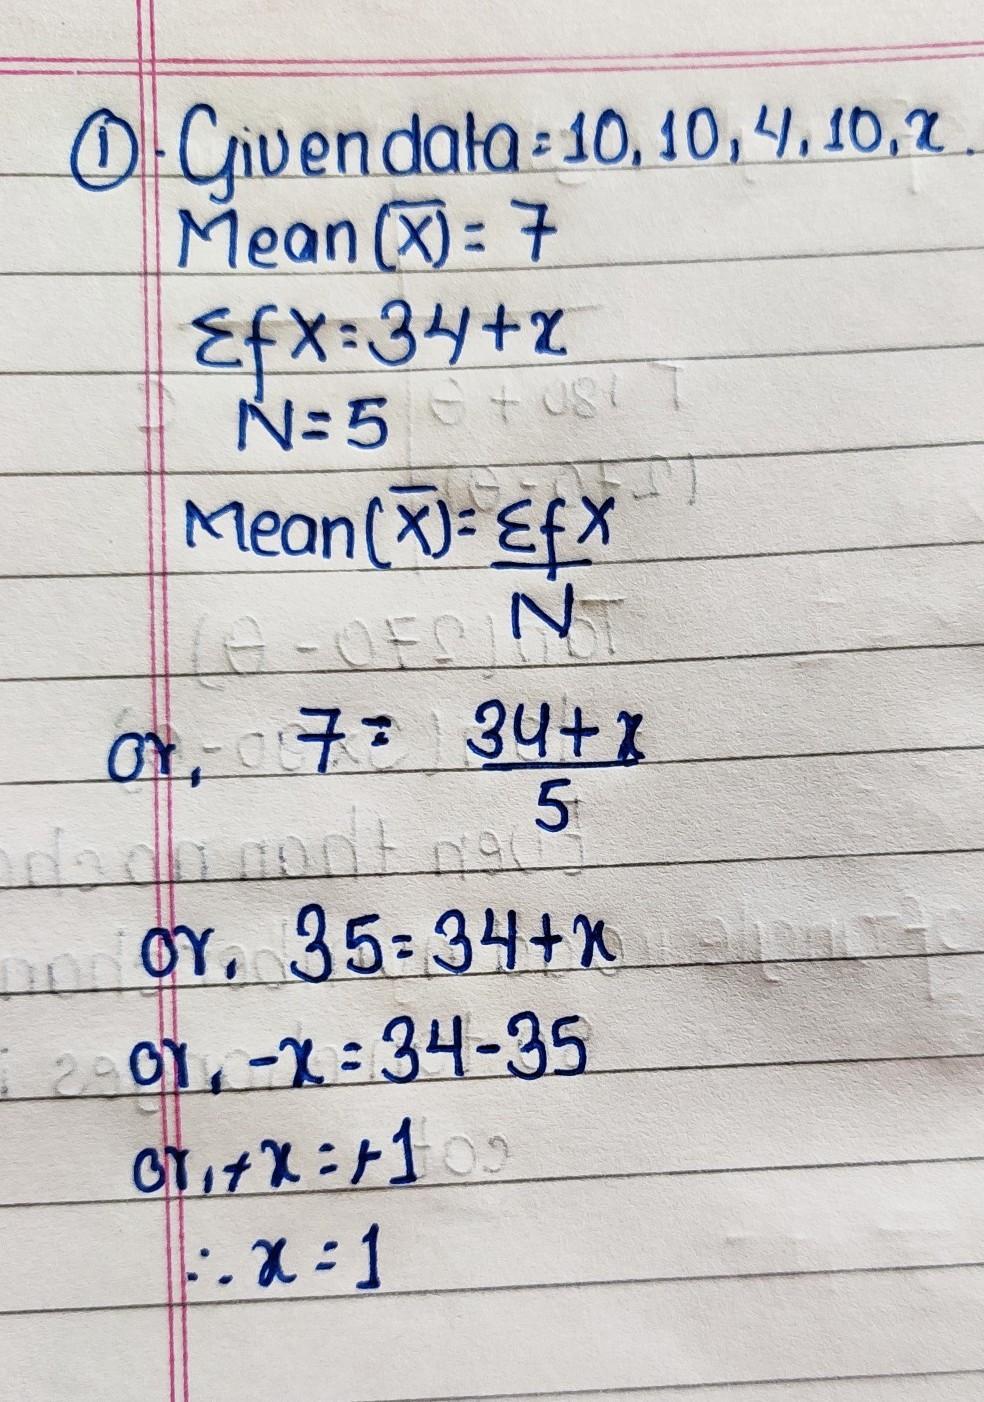 ① Given data = 10, 10, 4, 10, x.
Mean (X̅) = 7
Σfx = 34 + x
N = 5
Mean (X̅) = Σfx
N
or, 7 = 34 + x
5
or, 35 = 34 + x
or, -x = 34 - 35
or, + x = + 1
∴ x = 1